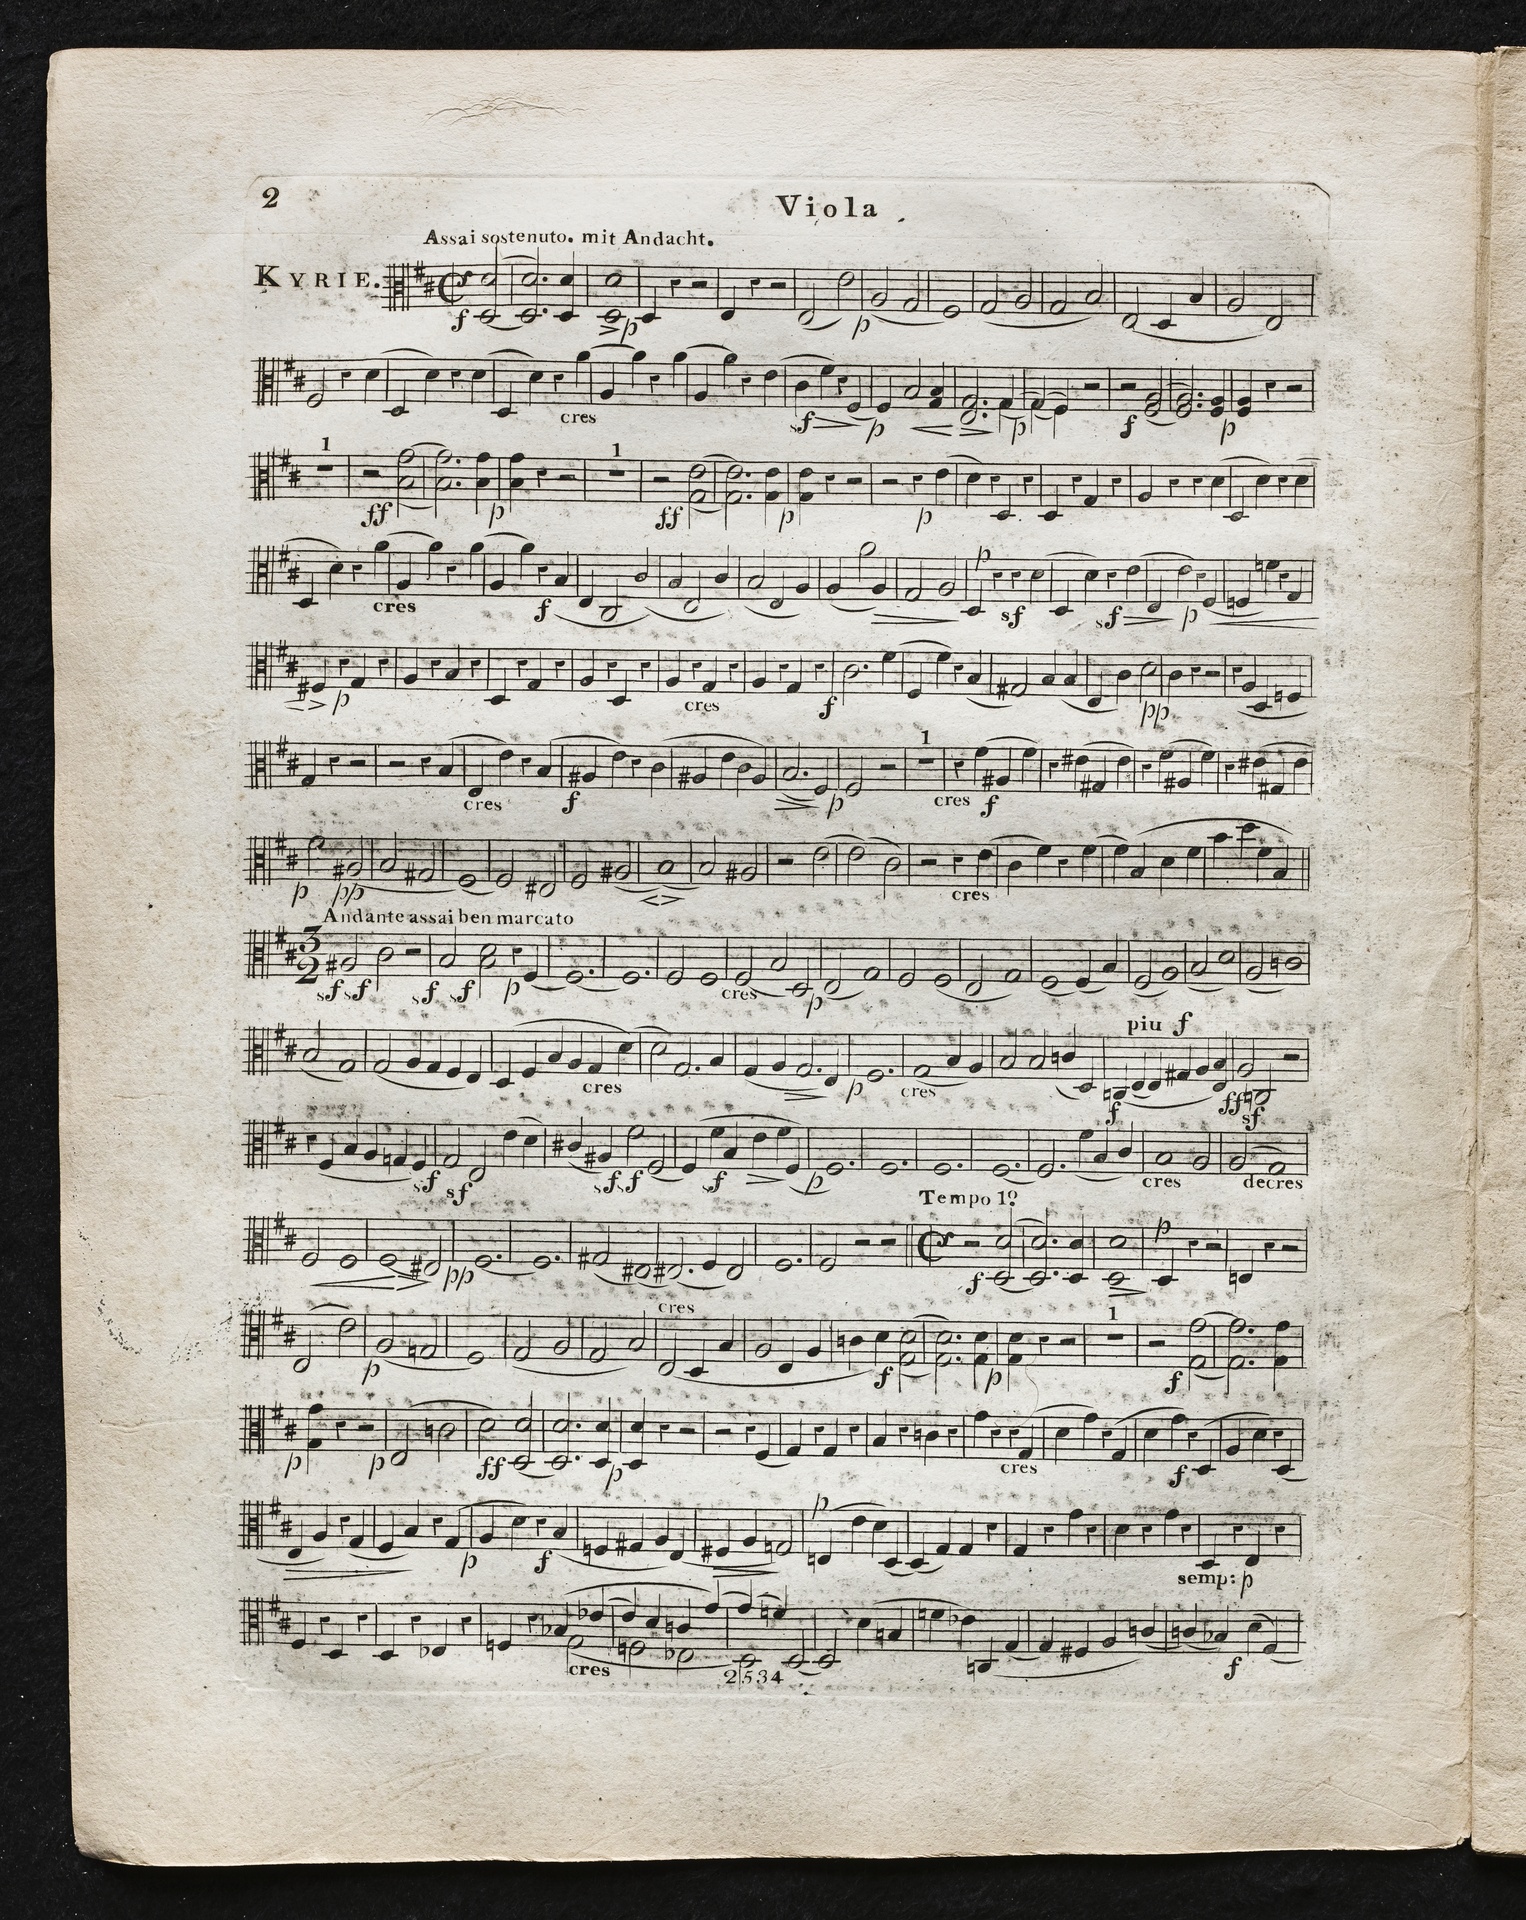 2
Viola
Assai sostenuto. mit Andacht.
KYRIE.
f
> p
p
cres
sf
p
p
f
p
1
1
ff
p
ff
p
p
p
cres
f
sf
sf
p
p
cres
f
pp
1
cres
f
p
cres
f
p
pp
<>
cres
Andante assai ben marcato
3
2
sf sf
sf
sf
p
cres
p
piu f
cres
p
cres
f
ff
sf
sf
sf
sf f
sf
p
cres
decres
Tempo 1º
p
pp
f
cres
1
p
f
p
f
p
p
ff
p
cres
f
p
p
f
semp: p
cres
f
2534